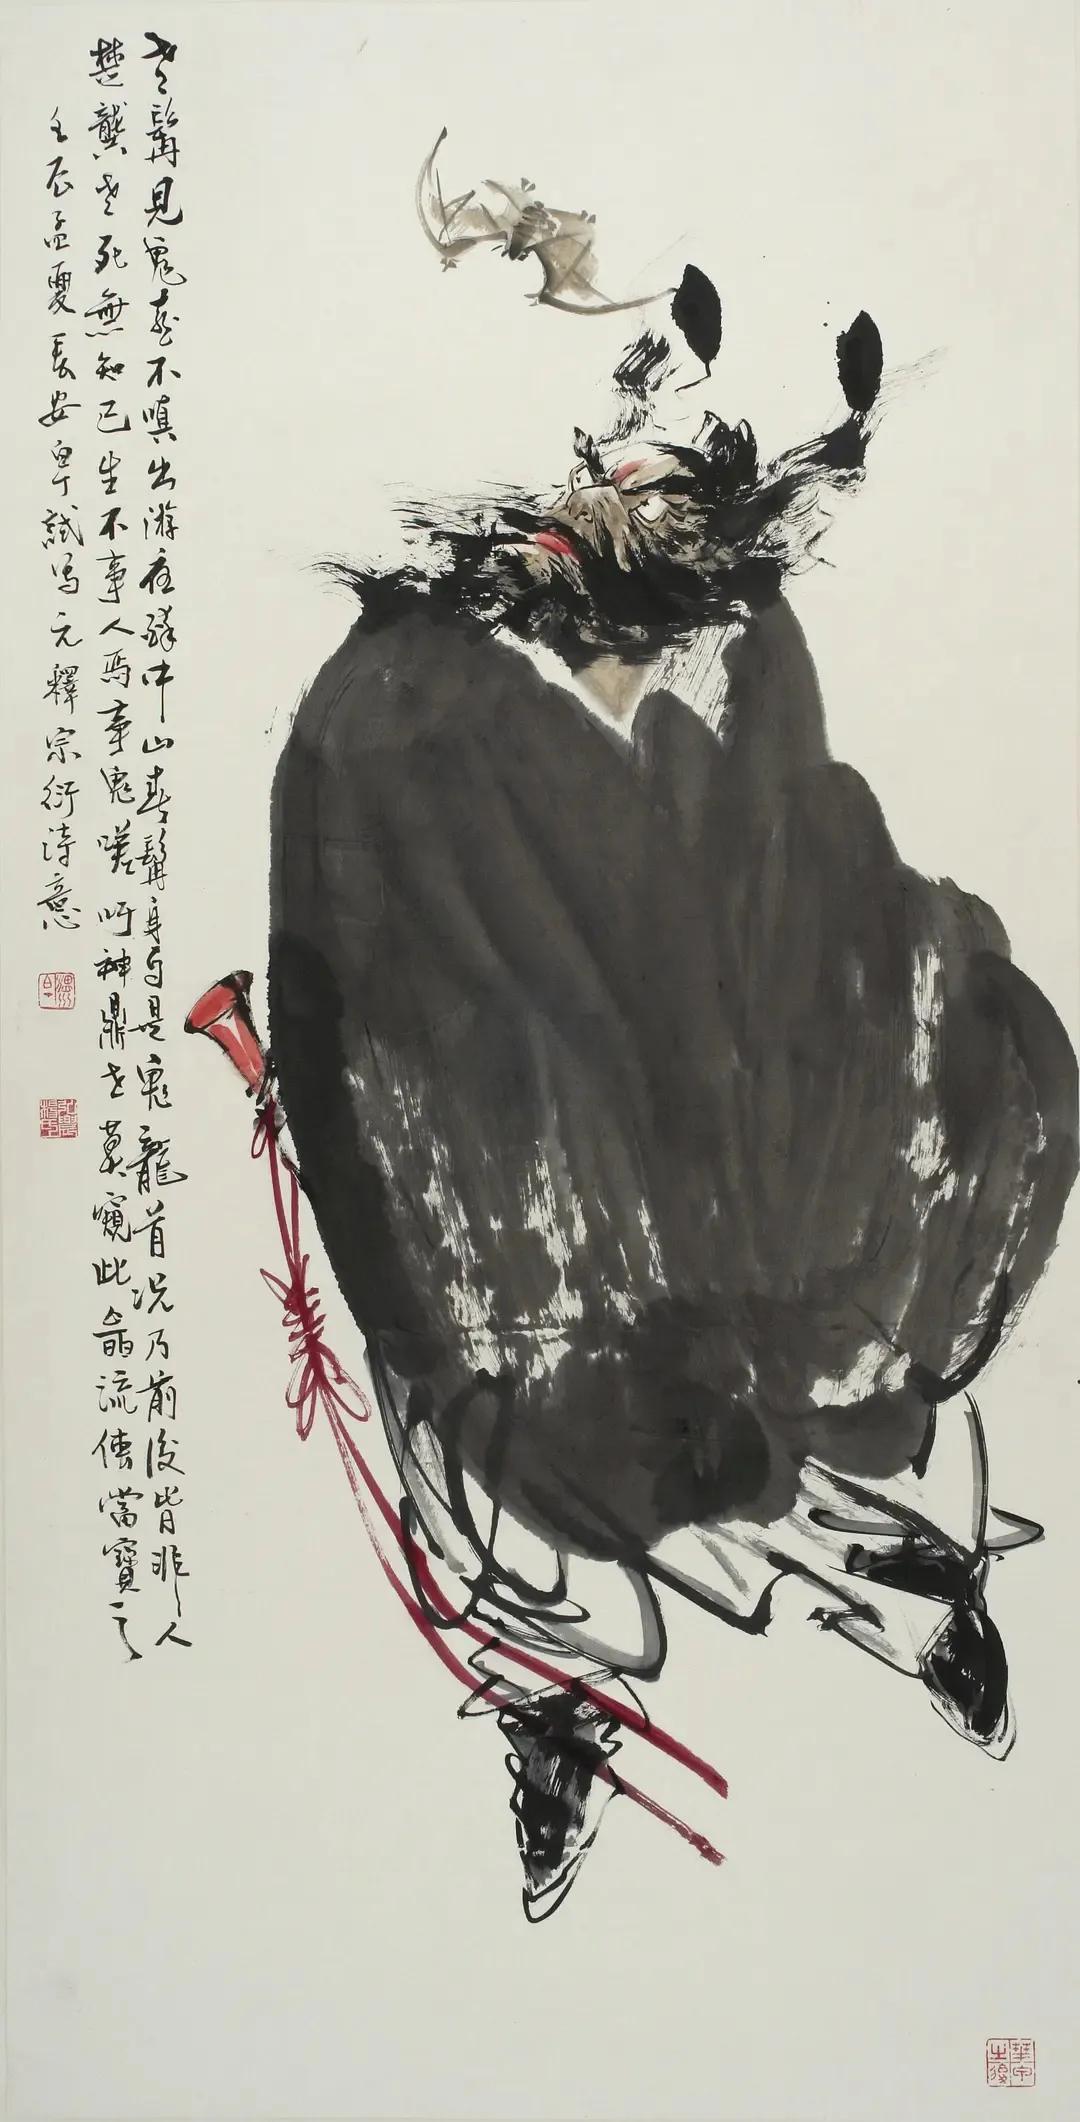 老髯見鬼喜不嗔出游夜醉中山春髯身自是鬼龍首況乃前後皆非人
楚龔老死無知己生不事人焉事鬼嗟吁神鼎世莫窺此畫流傳當寶之
壬辰孟夏長安白丁試寫元釋宗衍詩意